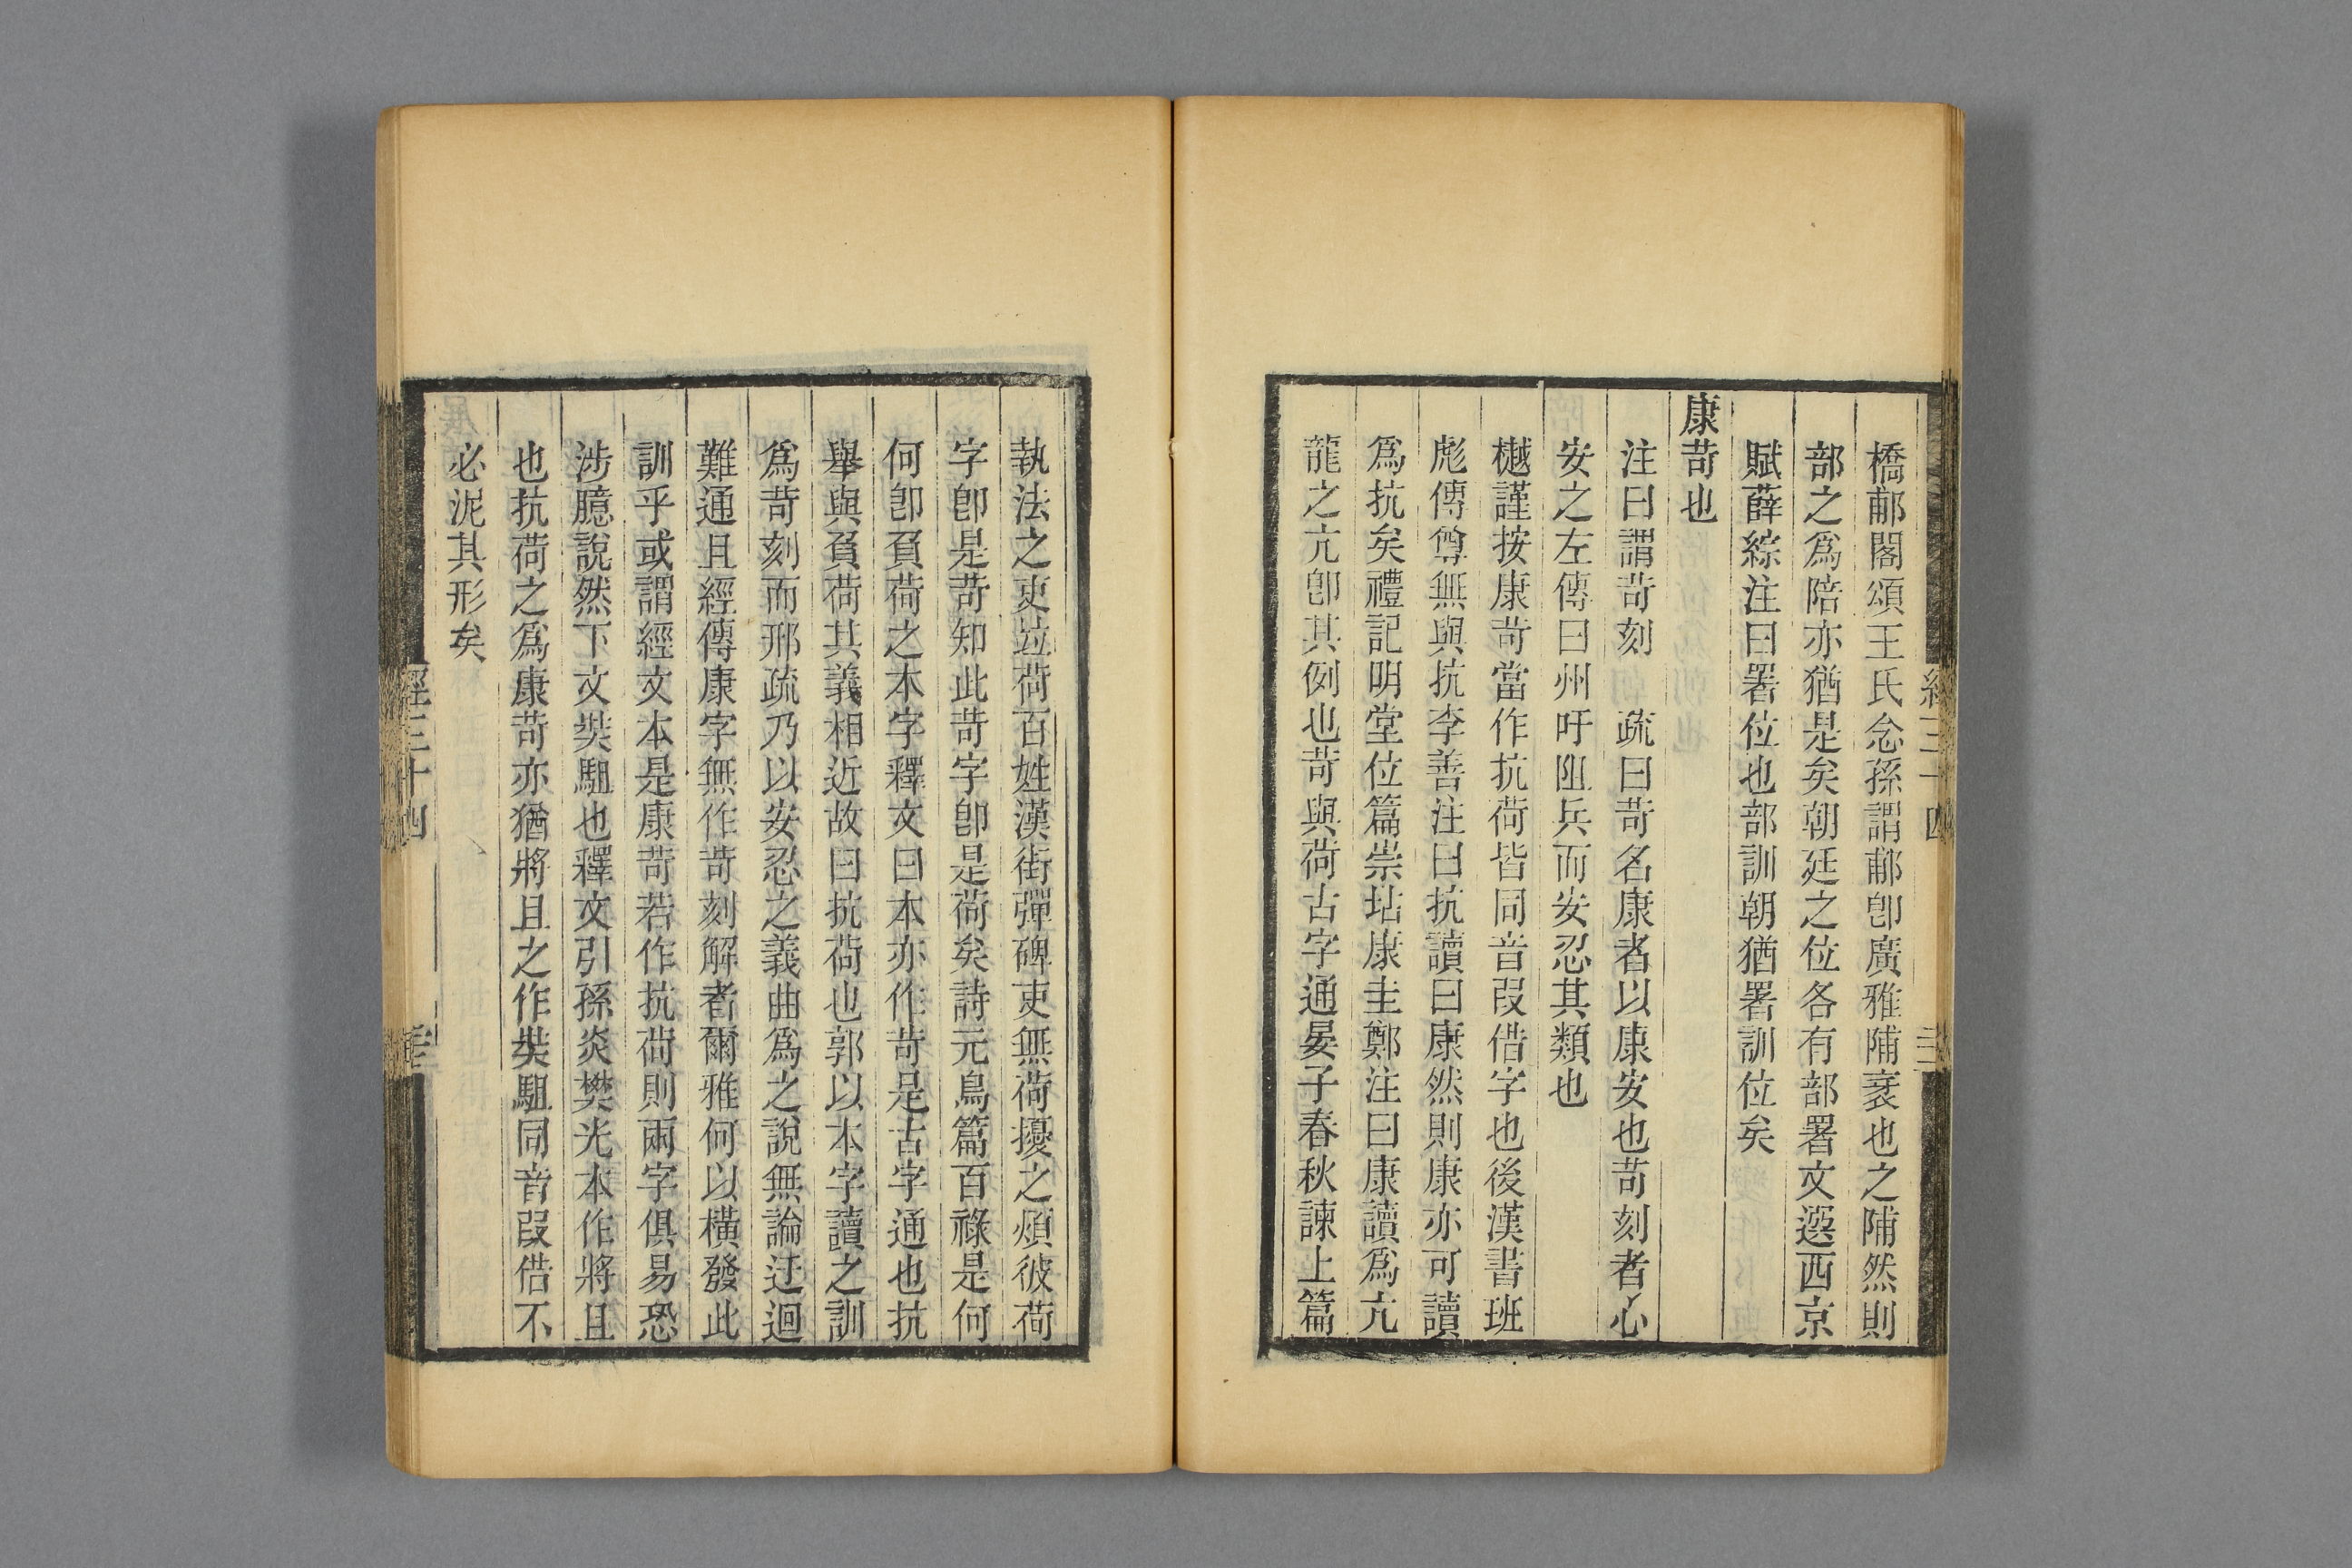 橋郙閣頌王氏念孫謂郙卽廣雅陠衺也之陠然則
部之爲陪亦猶是矣朝廷之位各有部署文選西京
賦薛綜注曰署位也部訓朝猶署訓位矣
康苛也
注曰謂苛刻　疏曰苛名康者以康安也苛刻者心
安之左傳曰州吁阻兵而安忍其類也
樾謹按康苛當作抗荷皆同音叚借字也後漢書班
彪傳尊無與抗李善注曰抗讀曰康然則康亦可讀
爲抗矣禮記明堂位篇崇坫康圭鄭注曰康讀爲亢
龍之亢卽其例也苛與荷古字通晏子春秋諫上篇
執法之吏竝荷百姓漢街彈碑吏無荷擾之煩彼荷
字卽是苛知此苛字卽是荷矣詩元鳥篇百祿是何
何卽負荷之本字釋文曰本亦作苛是古字通也抗
舉與負荷其義相近故曰抗荷也郭以本字讀之訓
爲苛刻而邢疏乃以安忍之義曲爲之說無論迂迴
難通且經傳康字無作苛刻解者爾雅何以橫發此
訓乎或謂經文本是康苛若作抗荷則兩字俱易恐
涉臆說然下文奘駔也釋文引孫炎樊光本作將且
也抗荷之爲康苛亦猶將且之作奘駔同音叚借不
必泥其形矣
經三十四